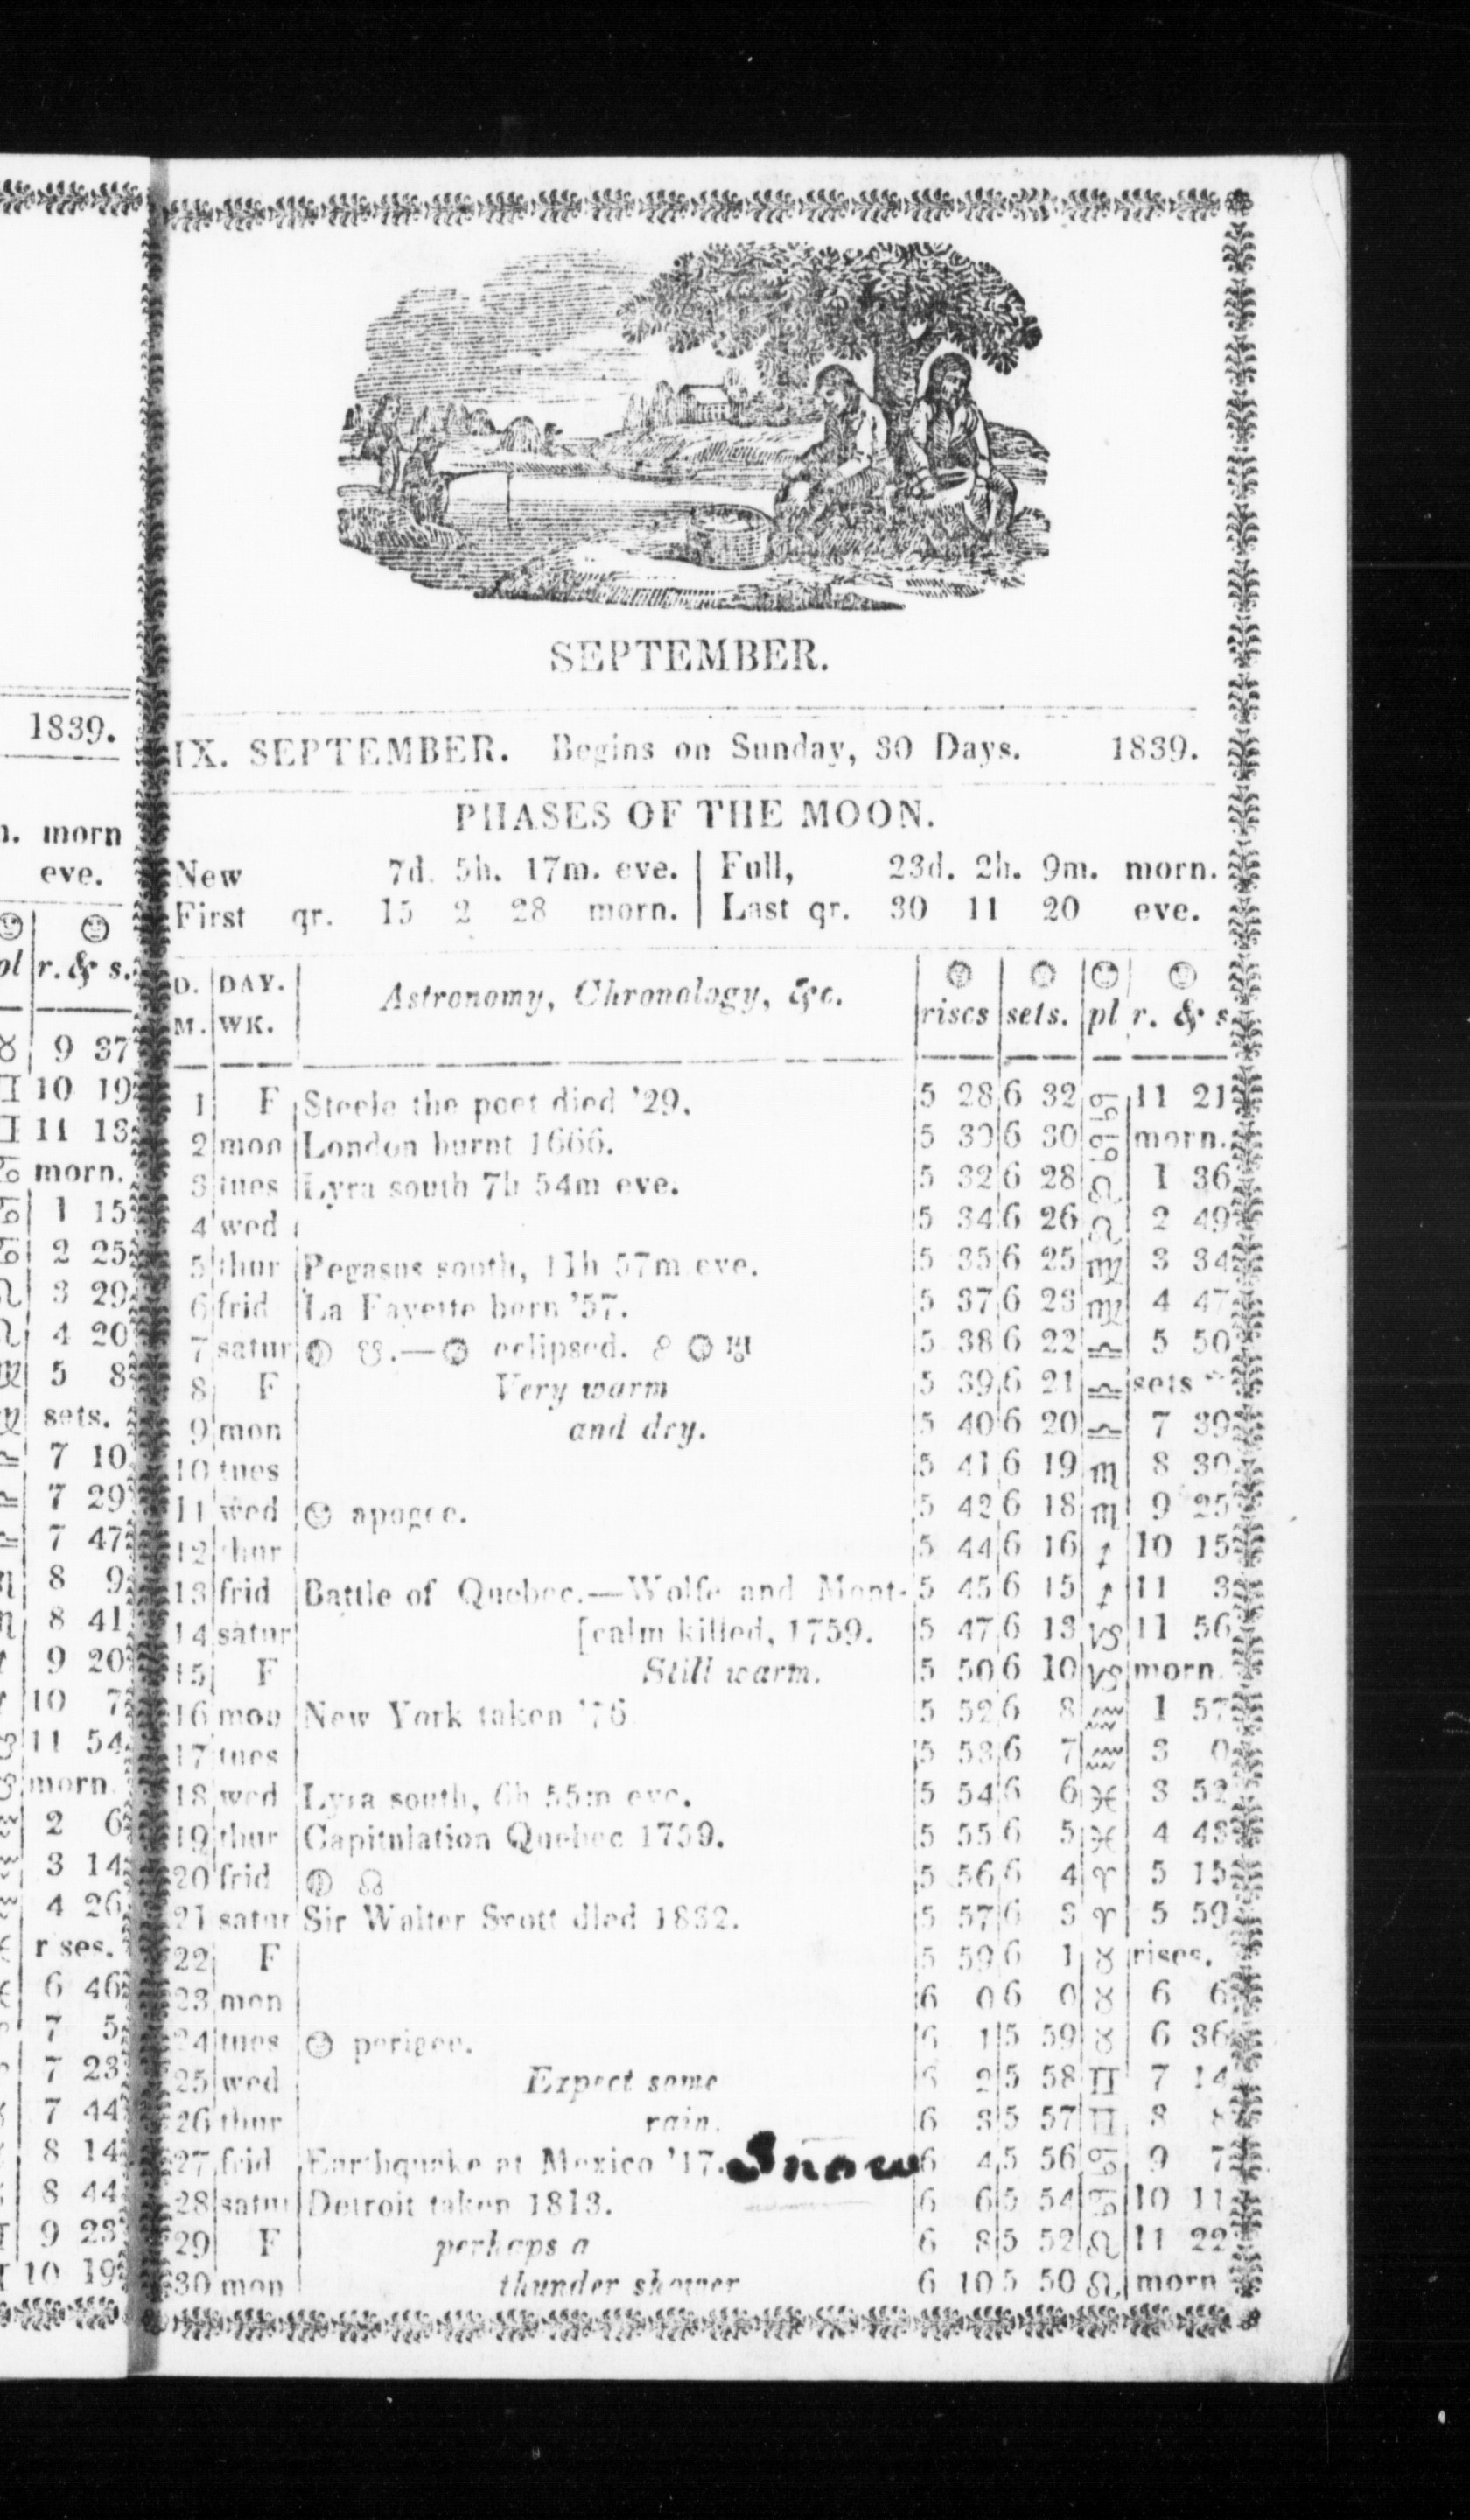 1839.
morn
eve.
pl r. & s.
9 37
10 19
11 13
morn.
1 15
2 25
3 29
4 20
5 8
sets.
7 10
7 29
7 47
8 9
8 41
9 20
10 7
11 54
morn.
2 6
3 14
4 26
r ses.
6 46
7 5
7 23
7 44
8 14
8 44
9 23
10 19
SEPTEMBER.
IX. SEPTEMBER. Begins on Sunday, 30 Days. 1839.
PHASES OF THE MOON.
New 7d. 5h. 17m. eve. | Full, 23d. 2h. 9m. morn.
First qr. 15 2 28 morn. | Last qr. 30 11 20 eve.
D. M. DAY. WK. Astronomy, Chronology, &c. rises sets. pl r. & s.
1 F Steele the poet died '29. 5 28 6 32 ♋ 11 21
2 mon London burnt 1666. 5 30 6 30 ♋ morn.
3 tues Lyra south 7h 54m eve. 5 32 6 28 ♌ 1 36
4 wed 5 34 6 26 ♌ 2 49
5 thur Pegasus south, 11h 57m eve. 5 35 6 25 ♍ 3 34
6 frid La Fayette born '57. 5 37 6 23 ♍ 4 47
7 satur ☋.— eclipsed. ☍ ♅ 5 38 6 22 ♎ 5 50
8 F Very warm 5 39 6 21 ♎ sets
9 mon and dry. 5 40 6 20 ♎ 7 39
10 tues 5 41 6 19 ♏ 8 30
11 wed apogee. 5 42 6 18 ♏ 9 25
12 thur 5 44 6 16 ♐ 10 15
13 frid Battle of Quebec.—Wolfe and Mont- 5 45 6 15 ♐ 11 3
14 satur [calm killed, 1759. 5 47 6 13 ♑ 11 56
15 F Still warm. 5 50 6 10 ♑ morn.
16 mon New York taken '76 5 52 6 8 ♒ 1 57
17 tues 5 53 6 7 ♒ 3 0
18 wed Lyra south, 6h 55m eve. 5 54 6 6 ♓ 3 52
19 thur Capitulation Quebec 1759. 5 55 6 5 ♓ 4 43
20 frid ☊ 5 56 6 4 ♈ 5 15
21 satur Sir Walter Scott died 1832. 5 57 6 3 ♈ 5 59
22 F 5 59 6 1 ♉ rises.
23 mon 6 0 6 0 ♉ 6 6
24 tues perigee. 6 1 5 59 ♉ 6 36
25 wed Expect some 6 2 5 58 ♊ 7 14
26 thur rain. 6 3 5 57 ♊ 8
27 frid Earthquake at Mexico '17. Snow 6 4 5 56 ♋ 9 7
28 satur Detroit taken 1813. 6 6 5 54 ♋ 10 11
29 F perhaps a 6 8 5 52 ♌ 11 22
30 mon thunder shower 6 10 5 50 ♌ morn